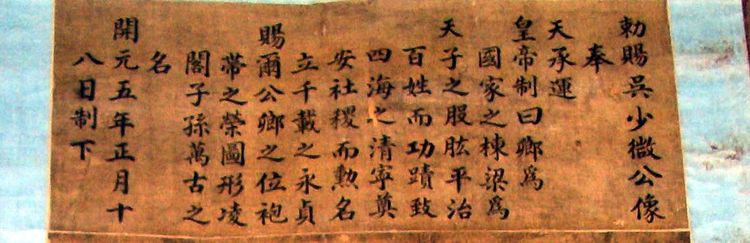 勅賜吳少微公像
奉
天承運
皇帝制曰鄉爲
國家之棟梁爲
天子之股肱平治
百姓而功蹟致
四海之清寧奠
安社稷而勲名
立千載之永貞
賜爾公鄉之位袍
帶之榮圖形凌
閣子孫萬古之
名
開元五年正月十
八日制下